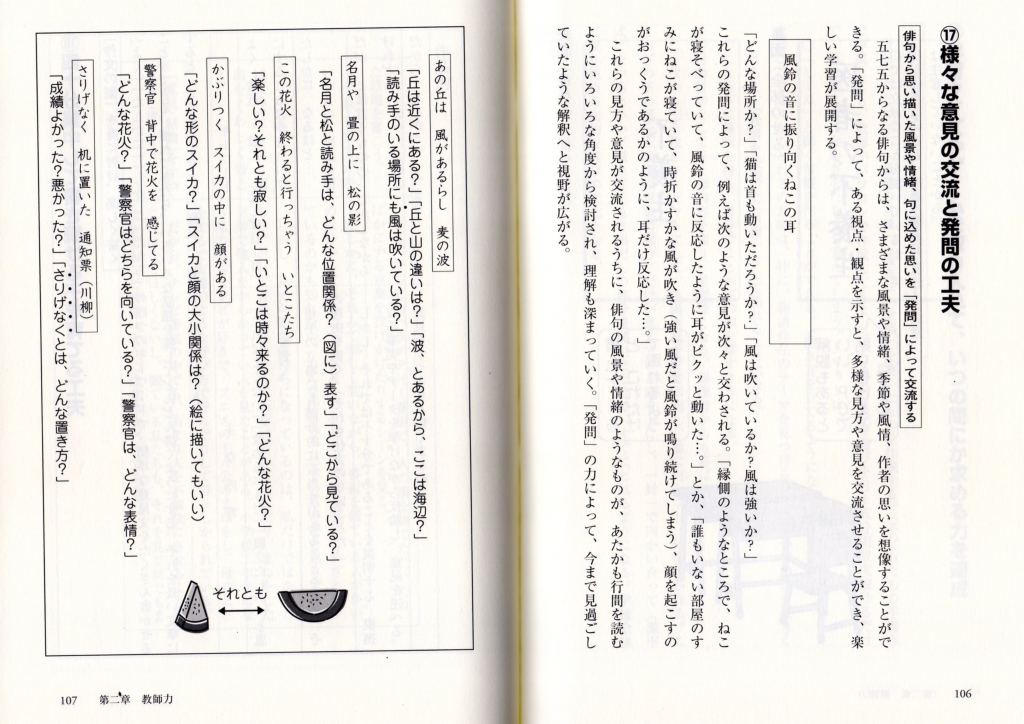 ⑰様々な意見の交流と発問の工夫
俳句から思い描いた風景や情緒、句に込めた思いを「発問」によって交流する
五七五からなる俳句からは、さまざまな風景や情緒、季節や風情、作者の思いを想像することがで
きる。「発問」によって、ある視点・観点を示すと、多様な見方や意見を交流させることができ、楽
しい学習が展開する。
風鈴の音に振り向くねこの耳
「どんな場所か?」「猫は首も動いただろうか?」「風は吹いているか?風は強いか?」
これらの発問によって、例えば次のような意見が次々と交わされる。「縁側のようなところで、ねこ
が寝そべっていて、風鈴の音に反応したように耳がピクッと動いた…。」とか、「誰もいない部屋のす
みにねこが寝ていて、時折かすかな風が吹き（強い風だと風鈴が鳴り続けてしまう）、顔を起こすの
がおっくうであるかのように、耳だけ反応した…。」
これらの見方や意見が交流されるうちに、俳句の風景や情緒のようなものが、あたかも行間を読む
ようにいろいろな角度から検討され、理解も深まっていく。「発問」の力によって、今まで見過ごし
ていたような解釈へと視野が広がる。
106
あの丘は　風があるらし　麦の波
「丘は近くにある?」「丘と山の違いは?」「波、とあるから、ここは海辺?」
「読み手のいる場所にも風は吹いている?」
名月や　畳の上に　松の影
「名月と松と読み手は、どんな位置関係?（図に）表す」「どこから見ている?」
この花火　終わると行っちゃう　いとこたち
「楽しい?それとも寂しい?」「いとこは時々来るのか?」「どんな花火?」
かぶりつく　スイカの中に　顔がある
「どんな形のスイカ?」「スイカと顔の大小関係は?（絵に描いてもいい）
それとも
警察官　背中で花火を　感じてる
「どんな花火?」「警察官はどちらを向いている?」「警察官は、どんな表情?」
さりげなく　机に置いた　通知票（川柳）
「成績よかった?悪かった?」「さりげなくとは、どんな置き方?」
107　第二章　教師力